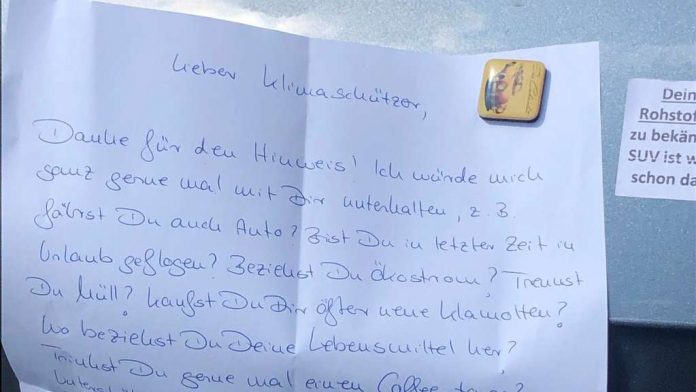 Lieber Klimaschützer,
Danke für den Hinweis! Ich würde mich
ganz gerne mal mit Dir unterhalten, z.B.
fährst Du auch Auto? Bist Du in letzter Zeit in
Urlaub geflogen? Beziehst Du Ökostrom? Trennst
Du Müll? Kaufst Du Dir öfter neue Klamotten?
Wo beziehst Du Deine Lebensmittel her?
Trinkst Du gerne mal einen Coffee
Dein
Rohstof
zu bekän
SUV ist w
schon da